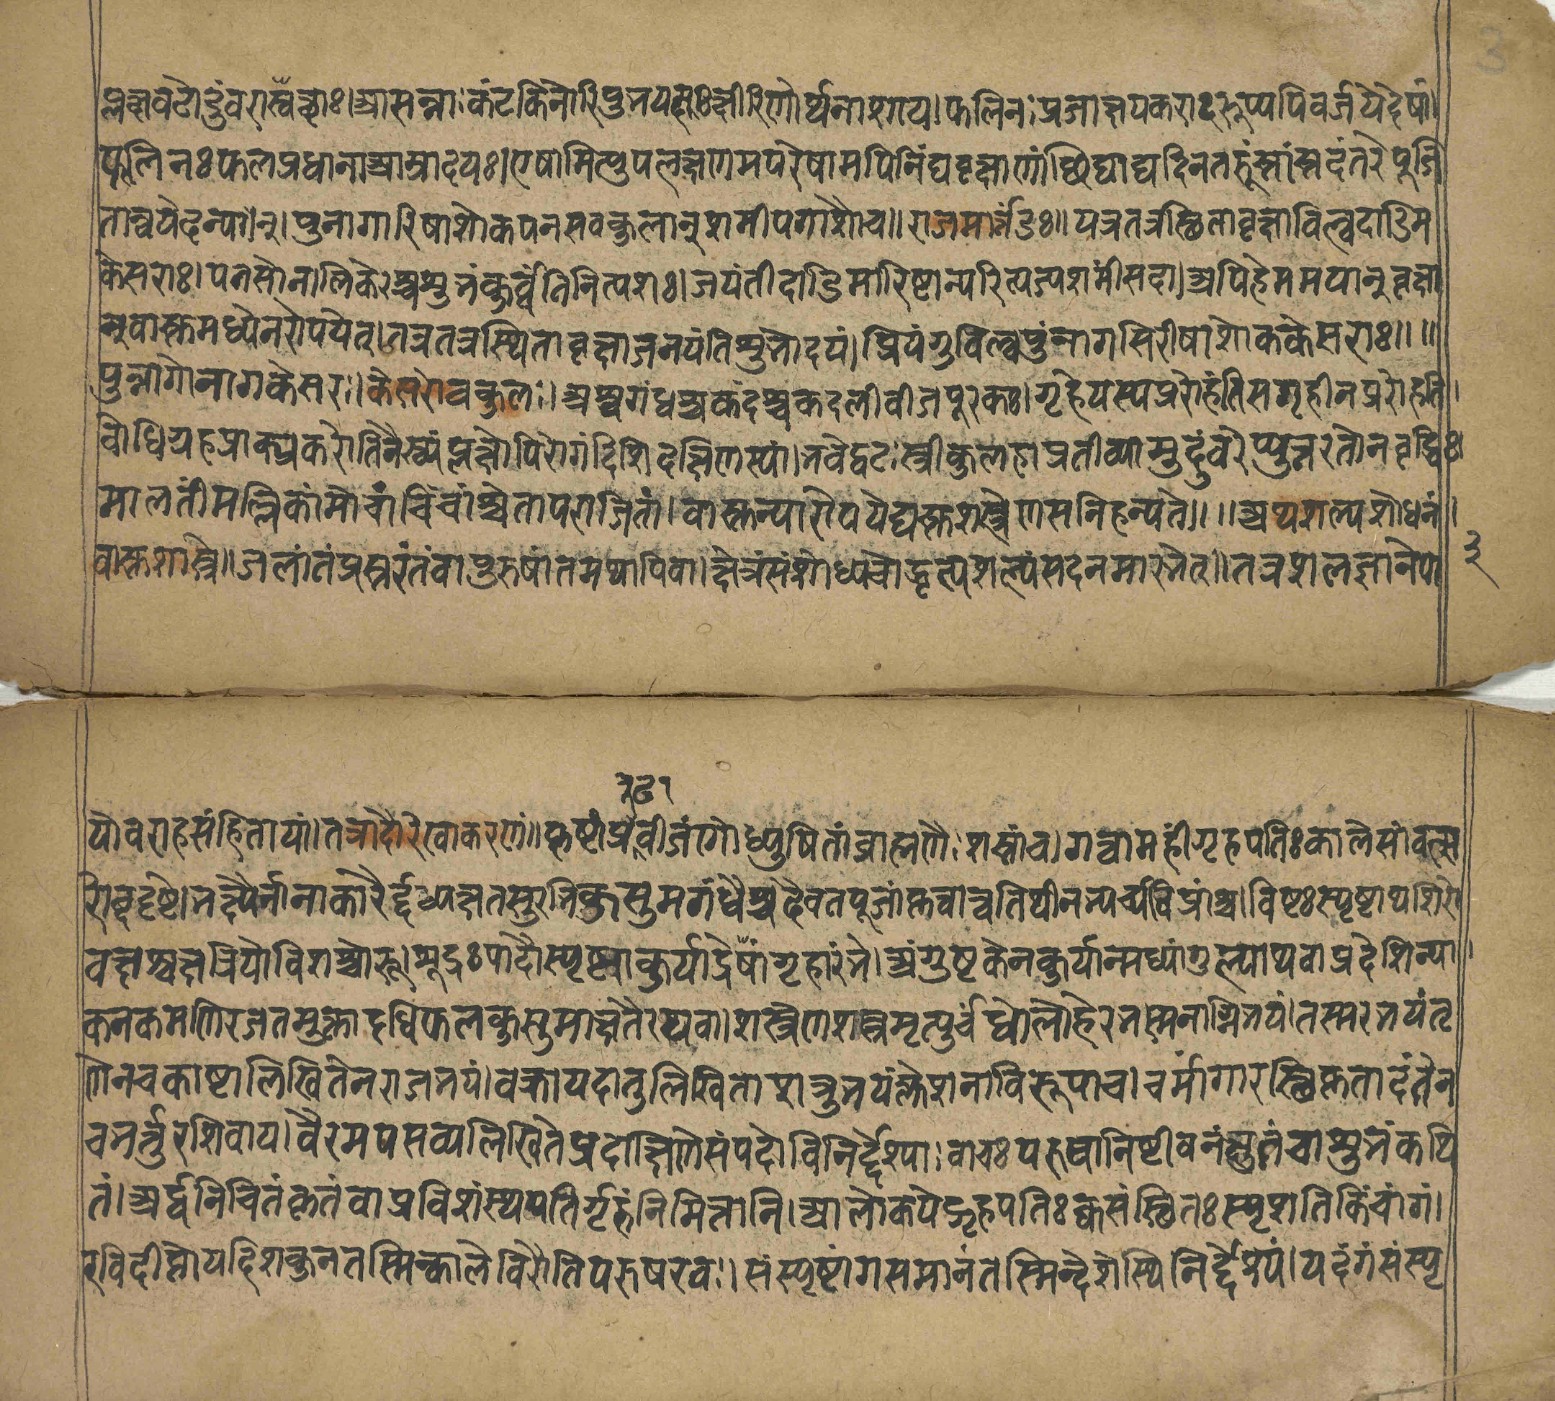 प्लक्षवटोडुंवराश्वत्थाः।आसन्नाः कंटकिनोरिपुभयदाःक्षीरिणोर्थनाशाय।फलिनः प्रजाक्षयकराः रूप्यपिवर्जयेदेषां।
फलिनः फलप्रधानाआम्रादयः।एषामित्युपलक्षणमपरेषामपिनिंद्यवृक्षाणां।छिंद्याद्यदिनतरूंस्तांस्तदंतरेपूजि
तान्वपेदन्यान्।पुन्नागारिष्टाशोकपनसवकुलान्शमीपलाशौच॥राजमार्त्तंडः॥यत्रतत्रस्थितावृक्षाविल्वदाडिम
केसराः।पनसोनालिकेरश्चशुभंकुर्व्वंतिनित्यशः।जयंतीदाडिमारिष्टान्परित्यज्यशमींसदा।अपिहेममयान्वृक्षा
न्वास्तमध्येनरोपयेत्।तत्रतत्रस्थितावृक्षाजनयंतिशुभोदयं।प्रियंगुविल्वपुंनागसिरीषाशोककेसराः।।॥
पुन्नागोनागकेसरः।केसरोवकुलः।अश्वगंधश्चकंदश्चकदलीवीजपूरकः।गृहेयस्यप्ररोहंतिसगृहीनप्ररोहति।
वोधिद्रुहप्राक्प्रकरोतिनैस्व्यंप्लक्षोपिरोगंदिशिदक्षिणस्यां।भवेद्वटःस्त्रीकुलहाप्रतीच्यामुदुंवरेप्युत्तरतोनवृद्धिः।
मालतींमल्लिकांमोचांचिंचांश्वेतापराजितां।वास्तन्यारोपयेद्यस्तशस्त्रेणसनिहन्यते।।॥अथशल्यशोधनं।
वास्तशास्त्रे॥जलांतंप्रस्तरंतंवापुरुषांतमथापिवा।क्षेत्रंसंशोध्यचोद्धृत्यशल्यंसदनमारभेत्॥तत्रशलज्ञानेपा
३
योवराहसंहितायां।तत्रादौरेखाकरणं॥कृष्टांप्ररूढवीजांगोध्युषितांब्राह्मणैः शस्तांच।गत्वामहींगृहपतिःकालेसांवत्स
रोद्दृष्टे।भक्ष्यैर्नानाकारैर्द्दध्यक्षतसुरभिकुसुमगंधैश्च।दैवतपूजांकृत्वात्वतिथीनभ्यर्च्यविप्रांश्च।विप्रःस्पृष्ट्वाथशिरो
वक्षश्चक्षत्रियोविशश्चोरू।शूद्रःपादौस्पृष्ट्वाकुर्याद्रेखांगृहारंभे।अंगुष्टकेनकुर्यान्मध्यांगुल्याथवाप्रदेशिन्या।
कनकमणिरजतमुक्तादधिफलकुसुमाक्षतैरथवा।शस्त्रेणशस्त्रमृत्युर्बंधोलौहेनभस्मनाग्निभयं।तस्करभयंतृ
णेनचकाष्टालिखितेनराजभयं।वक्रायदातुलिखिताशत्रुभयंक्लेशनाविरूपाच।चर्मांगारस्थिकृतादंतेन
चभर्त्तुरशिवाय।वैरमपसव्यलिखितेप्रदक्षिणेसंपदोविनिर्द्देश्याः वाचःपरुषानिष्टीवनंक्षुतंचाशुभंकथि
तं।अर्द्धनिचितंकृतंवाप्रविशंस्थपतिर्गृहेनिमित्तानि।आलोकयेद्गृहपतिःक्वसंस्थितःस्पृशतिकिंचांगं।
रविदीप्तोयदिशकुनतस्मिन्कालेविरौतिपरुषरवः।संस्पृष्टांगसमानंतस्मिन्देशेस्थिनिर्द्देश्यं।यदंगंसंस्पृ